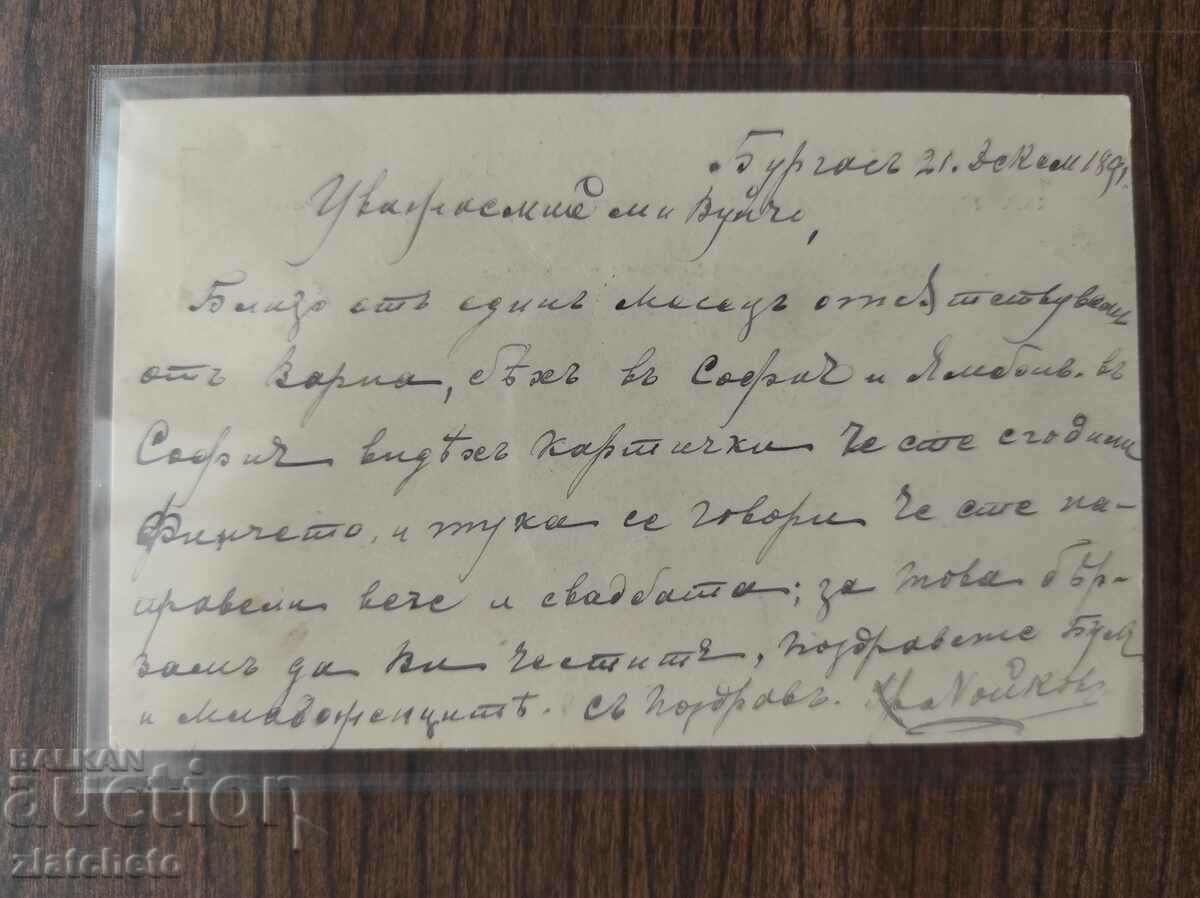 Бургасъ 21. Декем 1891.
Уважаемий ми Вуйчо,
Близо отъ единъ месецъ
отъ Варна, бѣхъ въ София и Ямболъ. въ
София видѣхъ картички че сте сгодили
Финчето, и тука се говори че сте на-
правели вече и свадбата; за това бър-
замъ да Ви честитя, поздравете
и Младоженцитѣ. съ поздравъ.
BALKAN
auction
zlatcheto